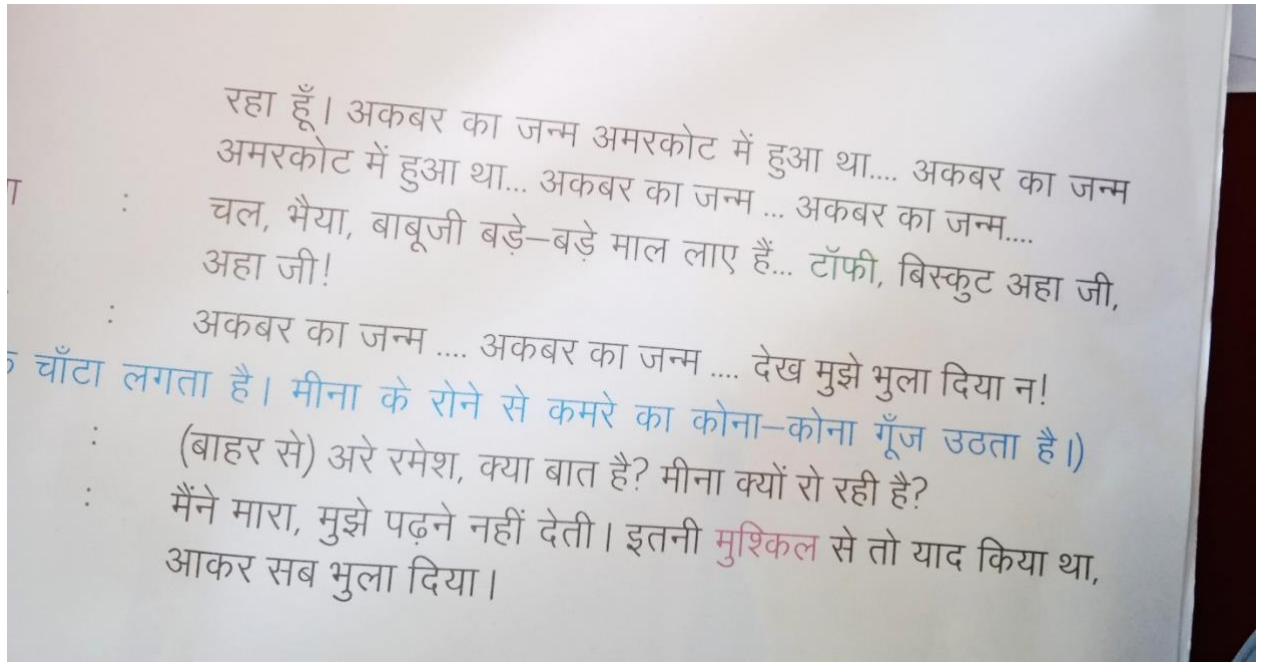 रहा हूँ। अकबर का जन्म अमरकोट में हुआ था.... अकबर का जन्म
अमरकोट में हुआ था... अकबर का जन्म ... अकबर का जन्म....
: चल, भैया, बाबूजी बड़े–बड़े माल लाए हैं... टॉफी, बिस्कुट अहा जी,
अहा जी!
: अकबर का जन्म .... अकबर का जन्म .... देख मुझे भुला दिया न!
चाँटा लगता है। मीना के रोने से कमरे का कोना–कोना गूँज उठता है।)
: (बाहर से) अरे रमेश, क्या बात है? मीना क्यों रो रही है?
: मैंने मारा, मुझे पढ़ने नहीं देती। इतनी मुश्किल से तो याद किया था,
आकर सब भुला दिया।